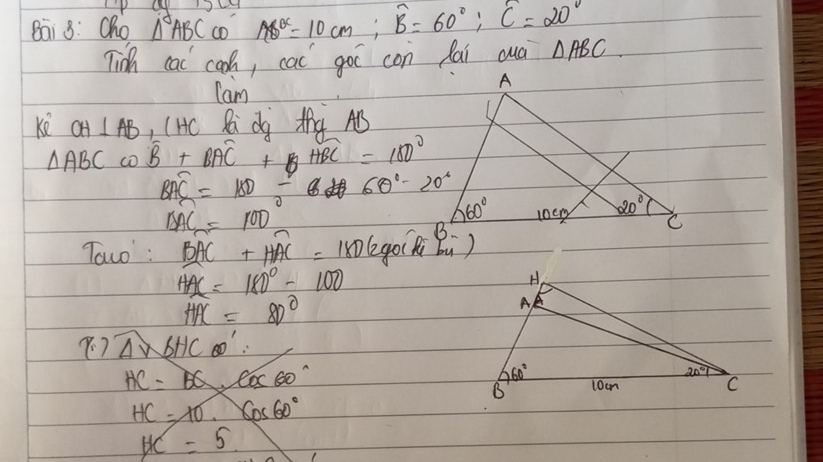 Bài 8: Cho △ABC có BC = 10 cm ; B̂ = 60° ; Ĉ = 20°
Tính các cạnh, các góc còn lại của △ABC.
Làm
Kẻ CH ⊥ AB, (HC là đg thg AB
△ABC có B̂ + BAĈ + HBĈ = 180°
BAĈ = 180 - 60° - 20°
BAĈ = 100°
Ta có : BAĈ + HAĈ = 180 (2 góc kề bù)
HAĈ = 180° - 100
HAĈ = 80°
△ v BHC có :
HC = BC . Cos 60°
HC = 10 . Cos 60°
HC = 5
A
60°
B
10cm
20°
C
H
A
60°
B
10cm
20°
C